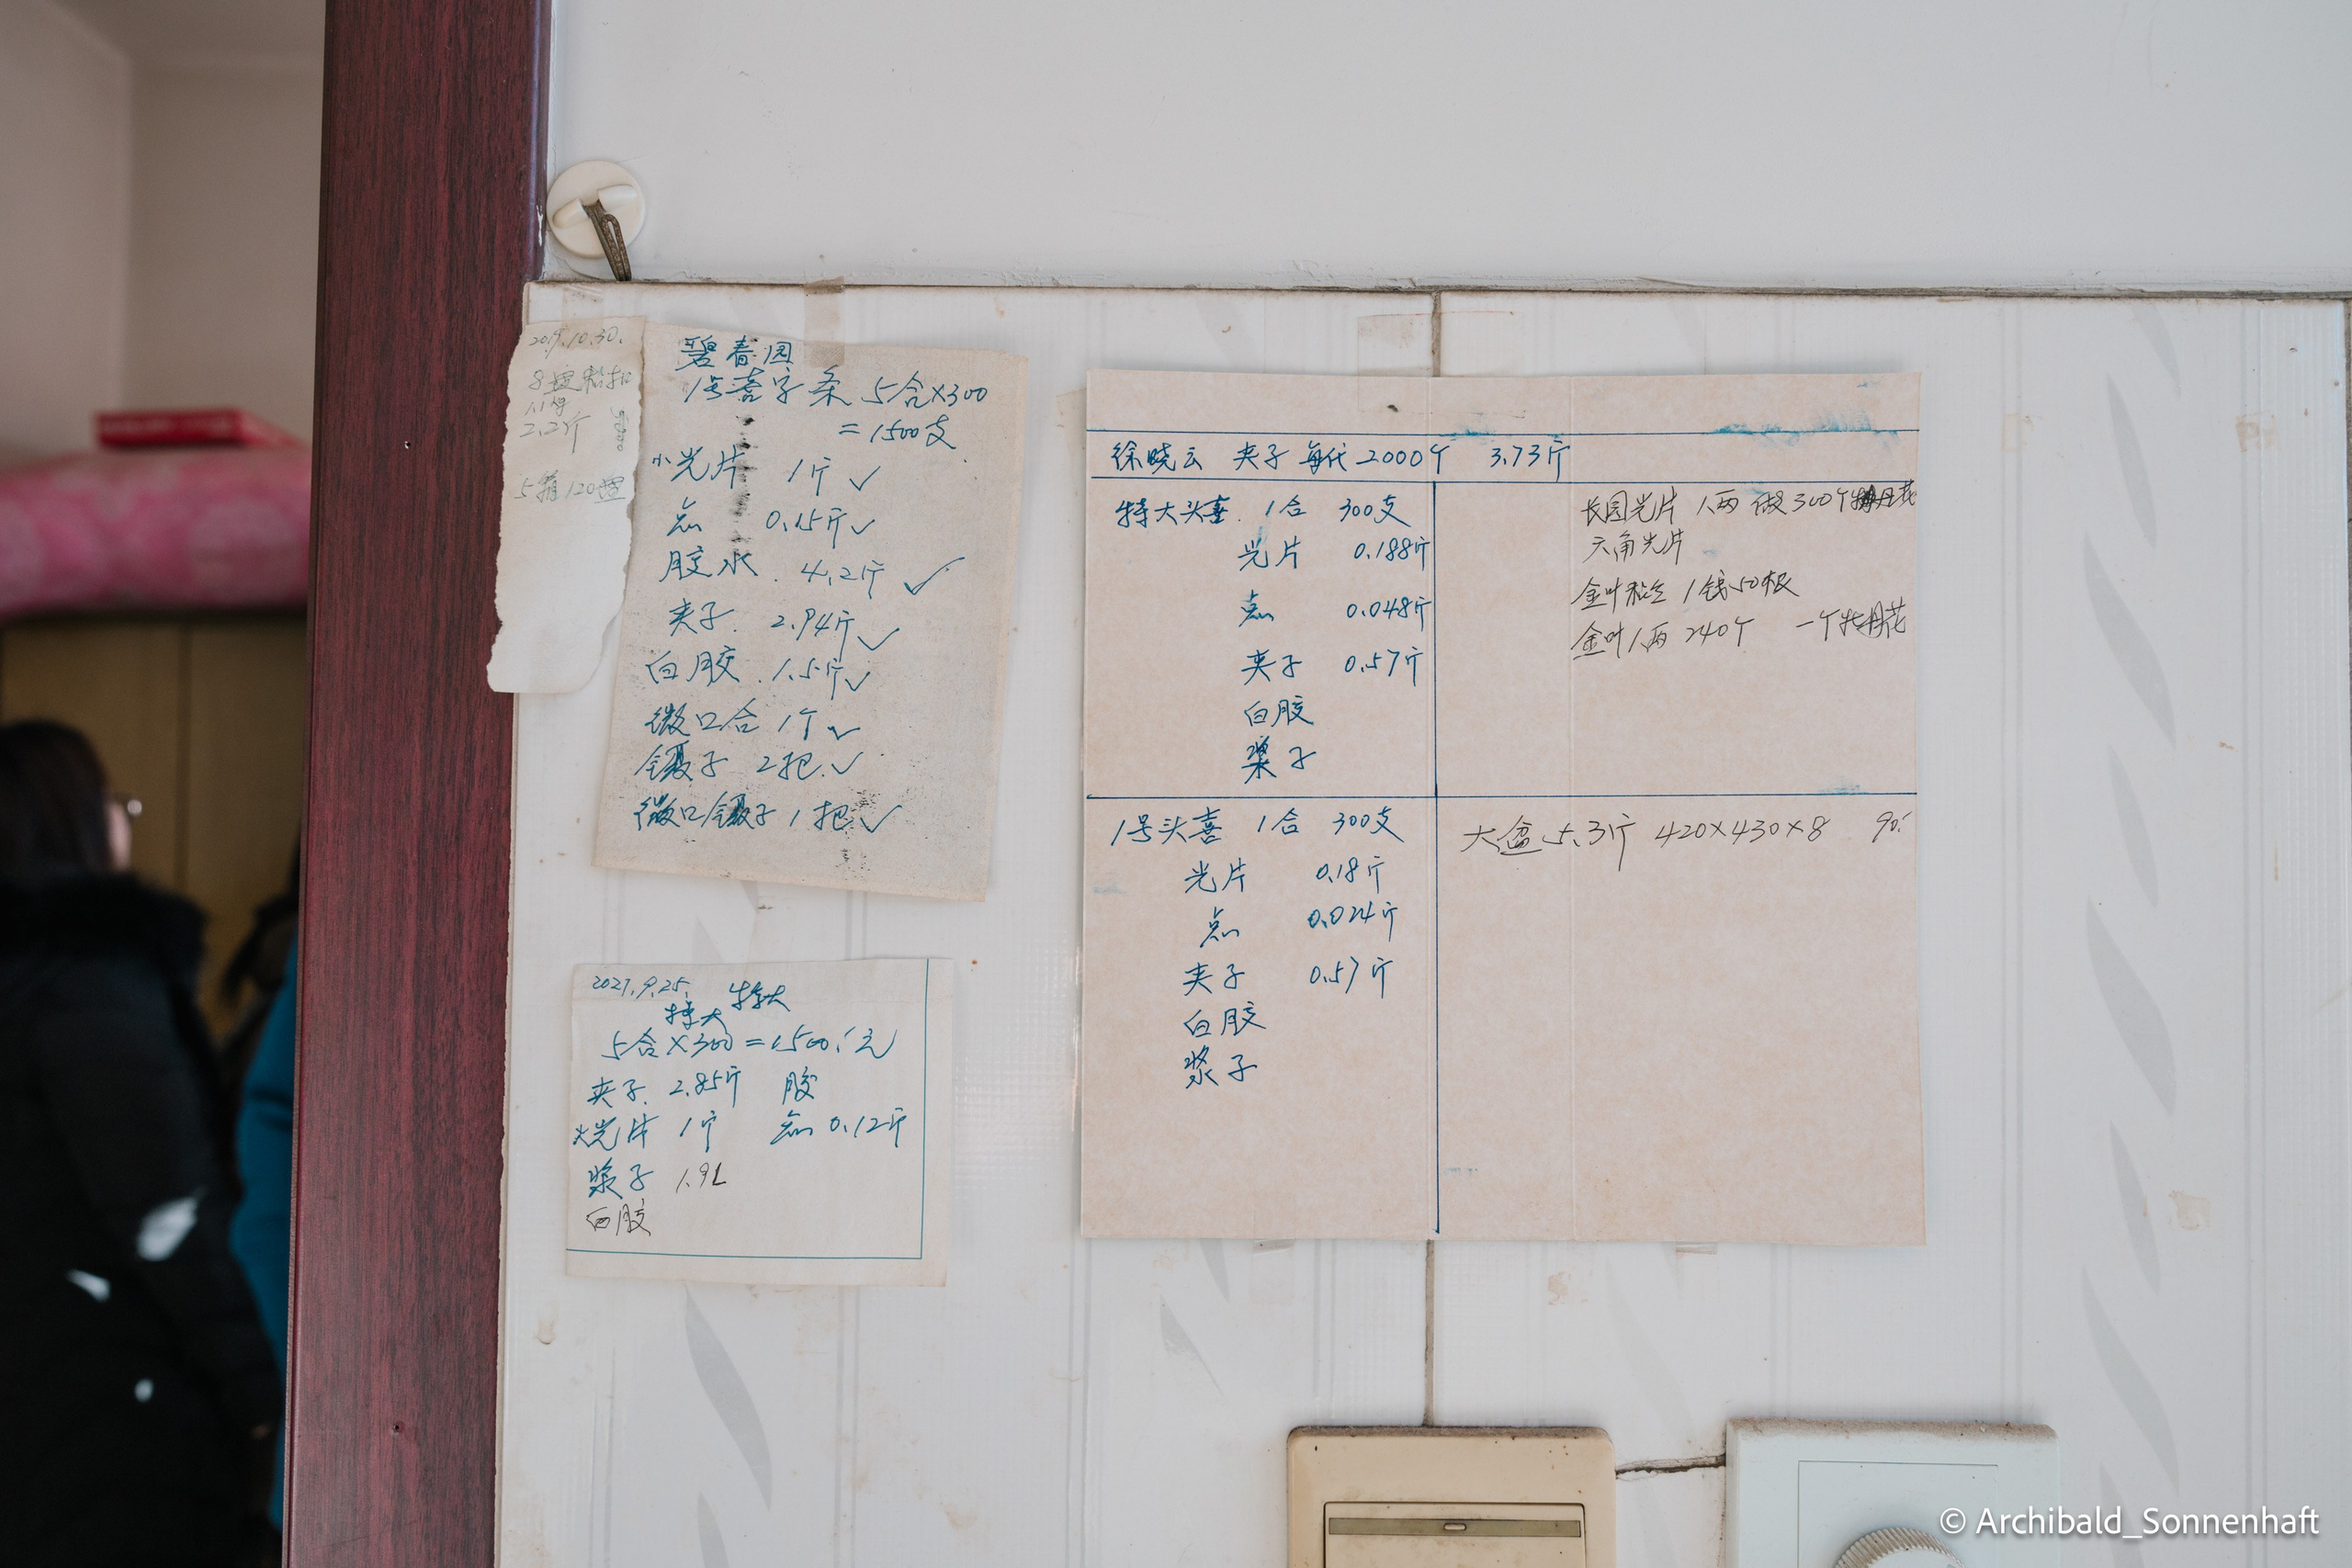 2019.10.30.
2.2斤
5箱120
碧春园
1号喜字条 5合×300
=1500支
小光片 1斤 ✓
点 0.15斤 ✓
胶水. 4.2斤 ✓
夹子. 2.94斤 ✓
白胶. 1.5斤 ✓
微口合 1个 ✓
镊子 2把. ✓
微口镊子 1把 ✓
2021.9.25. 特大
特大
5合×300=1500
夹子. 2.85斤 胶
光片 1斤 点 0.12斤
浆子 1.9L
白胶
徐晓云 夹子 每代2000个 3.73斤
特大头喜. 1合 300支
光片 0.188斤
点 0.048斤
夹子 0.57斤
白胶
浆子
长园光片 1两 做300个牡丹花
六角光片
金叶 1钱50根
金叶1两 240个 一个牡丹花
1号头喜 1合 300支
光片 0.18斤
点 0.024斤
夹子 0.57斤
白胶
浆子
大盆5.3斤 420×430×8 90
© Archibald_Sonnenhaft